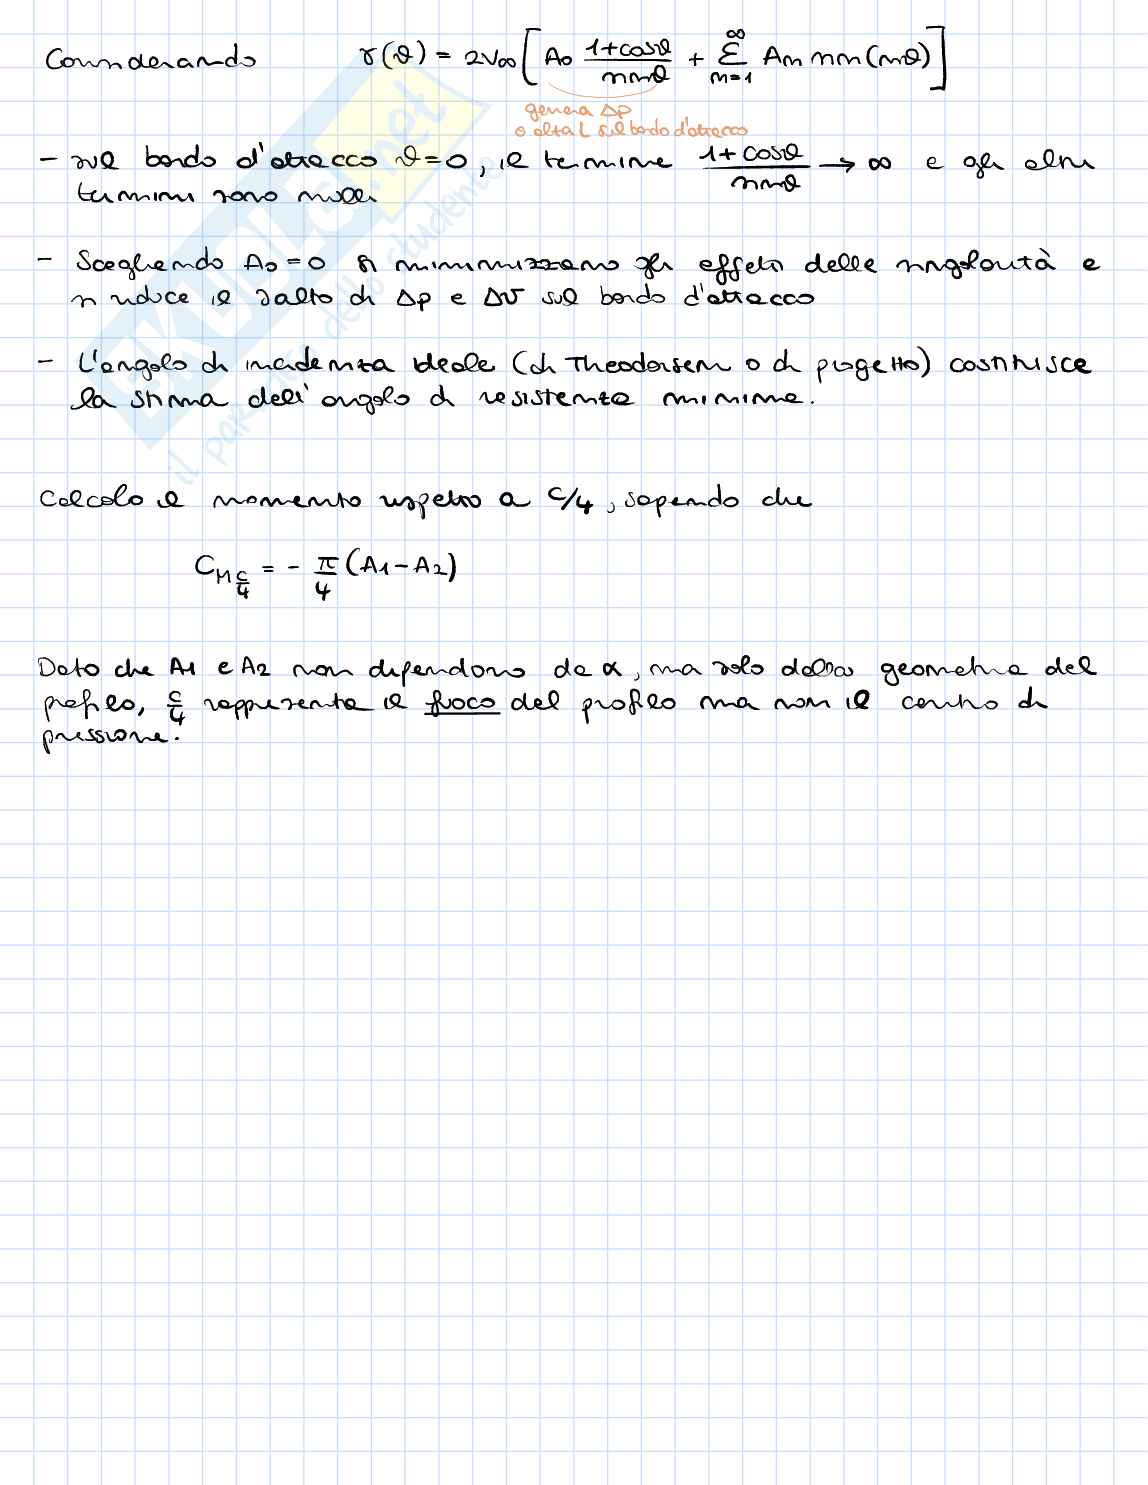 Considerando γ(ϑ) = 2V∞ [ A0 (1+cosϑ)/(sinϑ) + Σ_{n=1}^{∞} An sin(nϑ) ]
genera Δp
o alta L sul bordo d'attacco
- sul bordo d'attacco ϑ=0, il termine (1+cosϑ)/(sinϑ) → ∞ e gli altri
termini sono nulli
- Scegliendo A0=0 si minimizzano gli effetti delle singolarità e
si riduce il salto di Δp e ΔV sul bordo d'attacco
- L'angolo di incidenza ideale (di Theodorsen o di progetto) costituisce
la stima dell'angolo di resistenza minima.
Calcolo il momento rispetto a c/4, sapendo che
C_{M c/4} = - π/4 (A1-A2)
Dato che A1 e A2 non dipendono da α, ma solo dalla geometria del
profilo, c/4 rappresenta il fuoco del profilo ma non il centro di
pressione.
SKUOLA.net
il paradiso dello studente